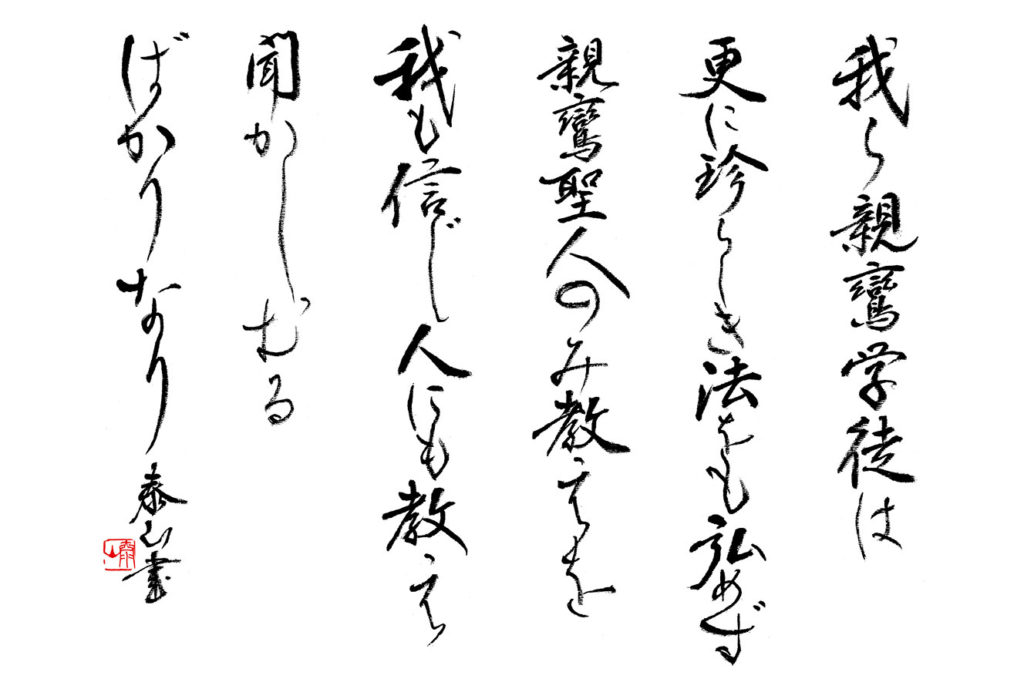 我ら親鸞学徒は
更に珍らしき法をも弘めず
親鸞聖人のみ教えを
我も信じ人にも教え
聞かしむる
ばかりなり
泰山書